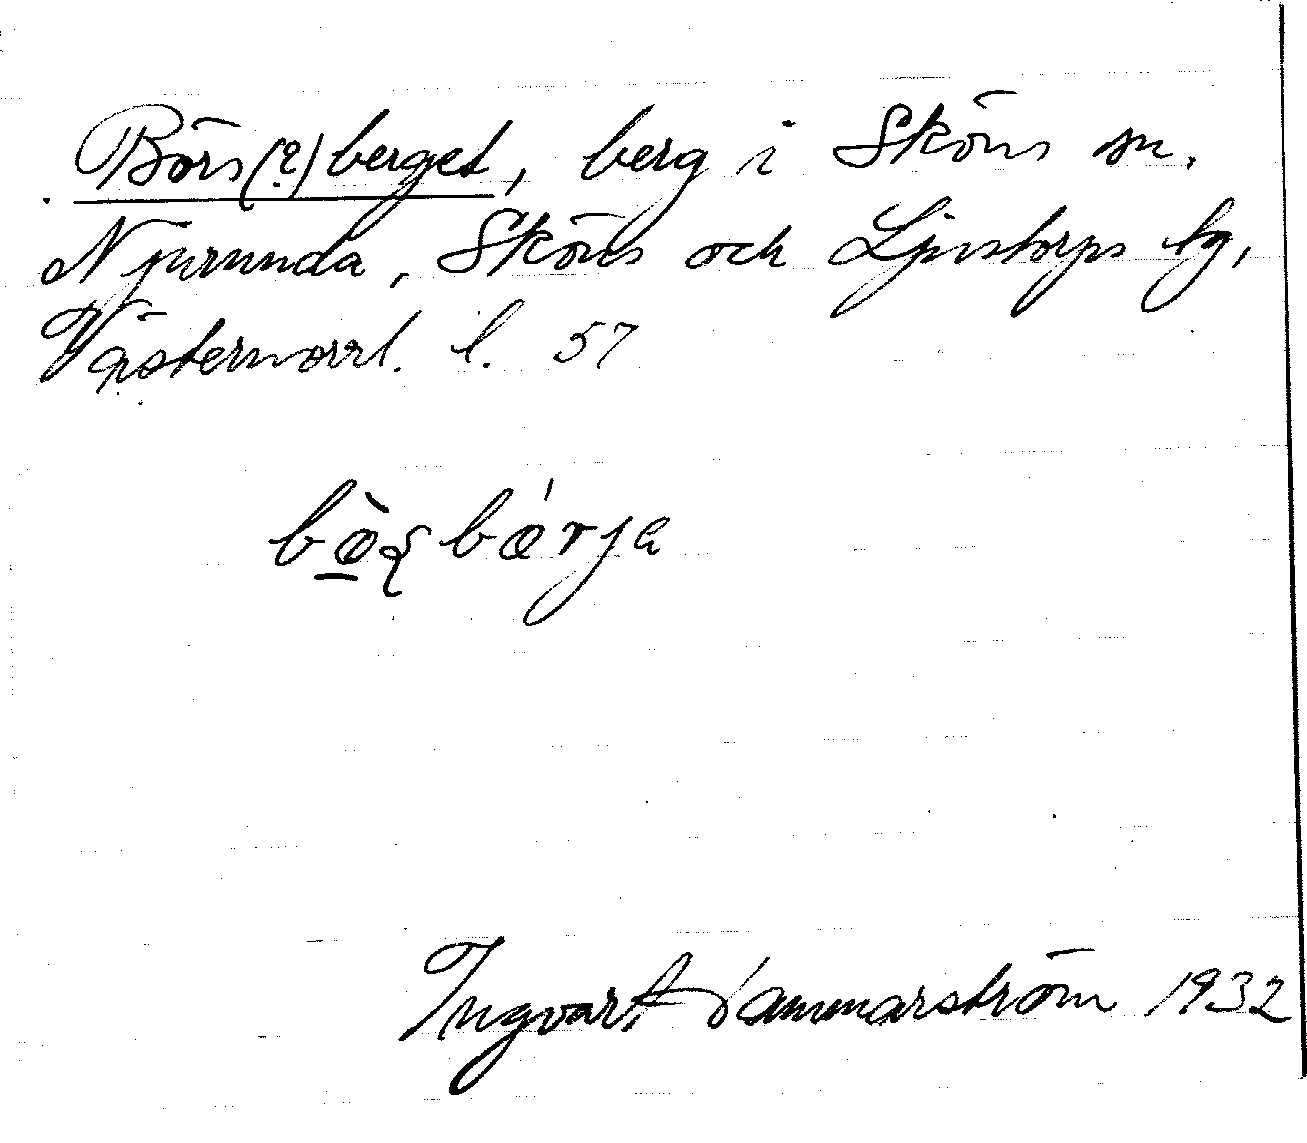 Börs(?)berget, berg i Sköns sn.
Njurunda, Sköns och Ljustorps tg,
Västernorrl. l. 57
Ingvar Hammarström 1932